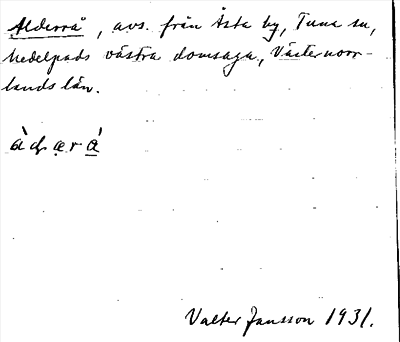 Alderrå, avs. från Åsta by, Tuna sn,
Medelpads västra domsaga, Västernorr-
lands län.
Valter Jansson 1931.